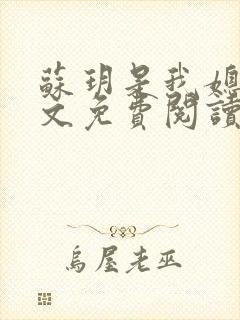 蘇玥是我媽
文免費閱讀
烏屋老巫